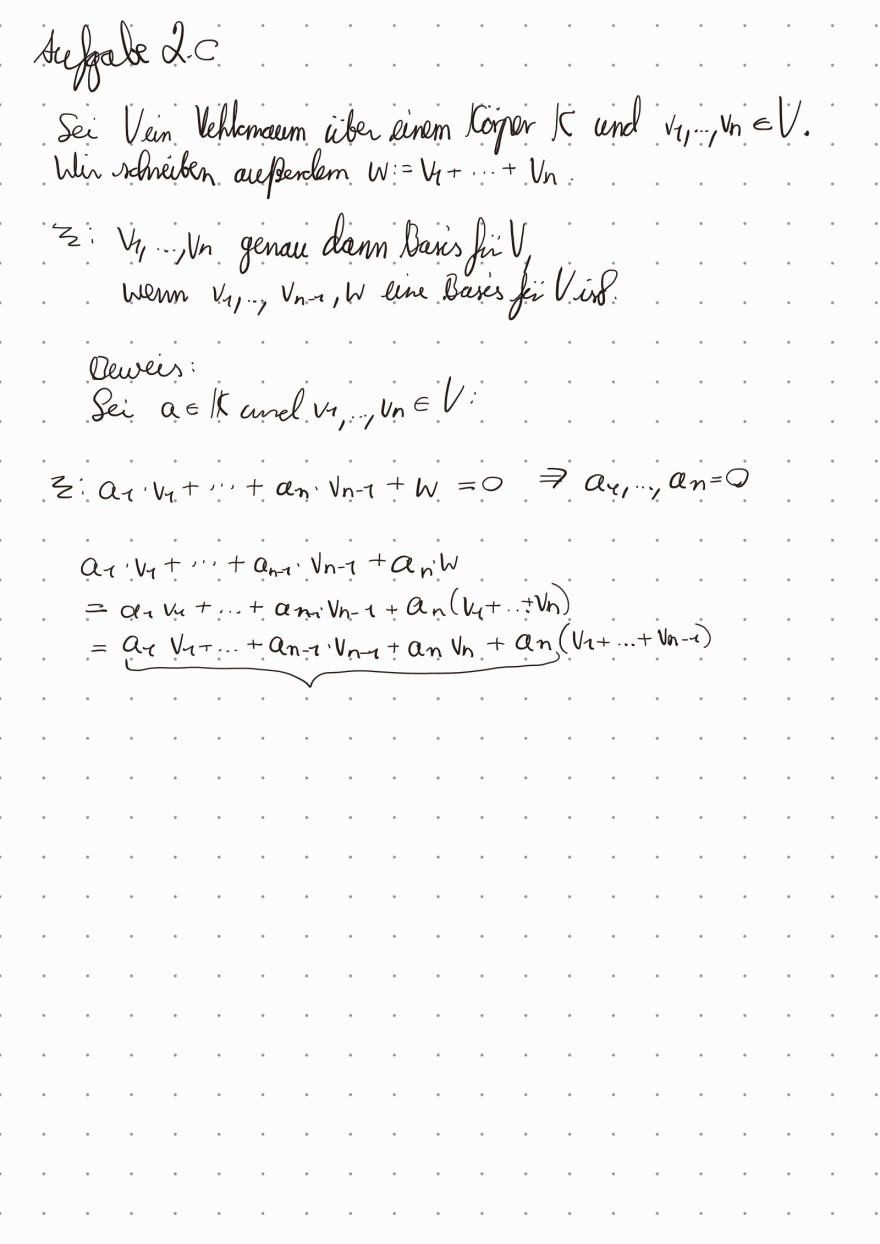 Aufgabe 2.c
Sei V ein Vektorraum über einem Körper K und v₁,...,vₙ ∈ V.
Wir schreiben außerdem w := v₁ + ... + vₙ.
Z: v₁,...,vₙ genau dann Basis für V,
wenn v₁,..., vₙ₋₁, w eine Basis für V ist.
Beweis:
Sei a ∈ K und v₁,...,vₙ ∈ V:
Z: a₁·v₁ + ... + aₙ·vₙ₋₁ + w = 0 ⇒ a₁,..., aₙ = 0
a₁·v₁ + ... + aₙ₋₁·vₙ₋₁ + aₙ·w
= a₁ v₁ + ... + aₙ₋₁·vₙ₋₁ + aₙ(v₁ + ... + vₙ)
= a₁ v₁ + ... + aₙ₋₁·vₙ₋₁ + aₙ vₙ + aₙ(v₁ + ... + vₙ₋₁)